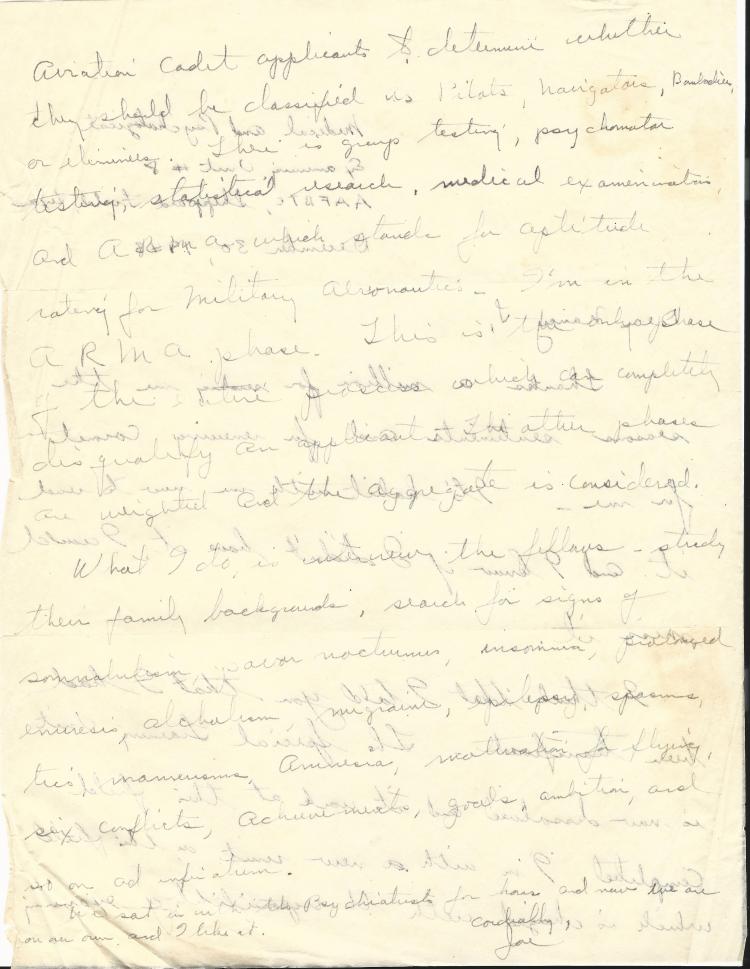 Aviation Cadet applicants to determine whether
they should be classified as Pilots, Navigators, Bombadiers,
or eliminees. There is group testing, psychomotor
testing, statistical research, medical examinations,
and A R M A, which stands for aptitude
rating for Military Aeronautics. I'm in the
A R M A phase. This is the only phase
in the entire process which can completely
disqualify an applicant. The other phases
are weighted and the aggregate is considered.
What I do is interview the fellows - study
their family backgrounds, search for signs of
somnambulism, pavor nocturnus, insomnia, prolonged
enuresis, alcoholism, migraine, epilepsy, spasms,
tics, mannerisms, Amnesia, motivation to flying,
sex conflicts, achievements, goals, ambition, and
so on ad infinitum.
We sat in with the Psychiatrists for hours and now we are
on our own, and I like it.
Cordially,
Joe